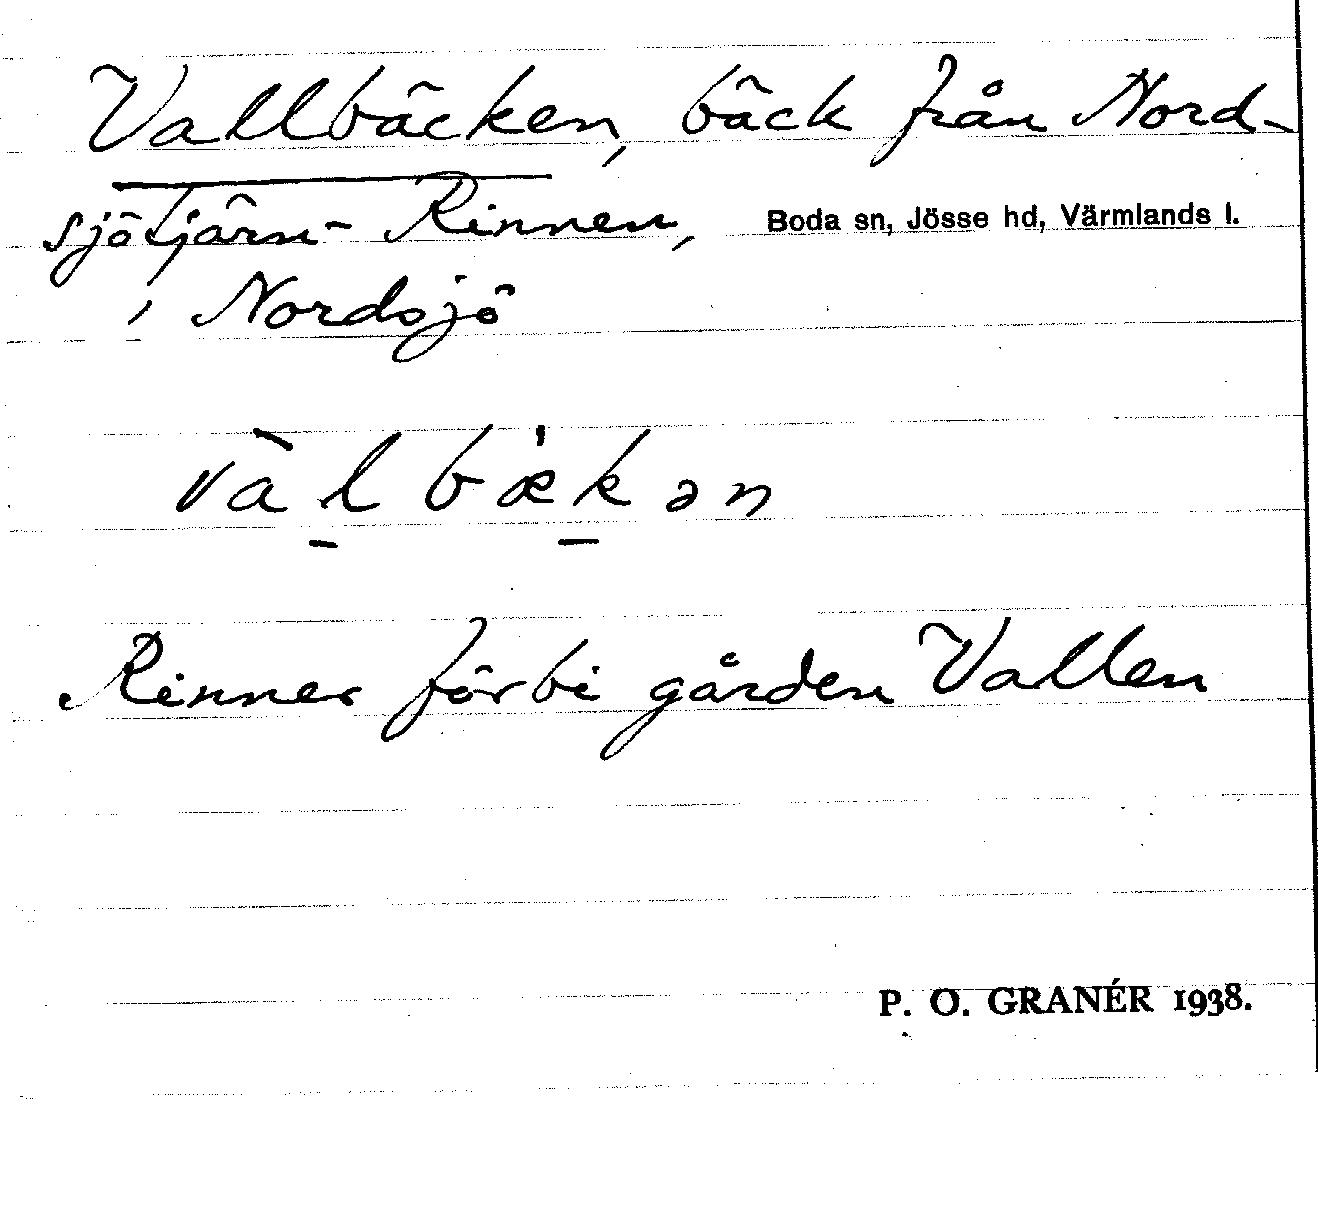 Vallbäcken, bäck från Nord-
sjötjärn - Rinnen, Boda sn, Jösse hd, Värmlands l.
i Nordsjö
vàl̠bæ̍k̠ən
Rinner förbi gården Vallen
P. O. GRANÉR 1938.